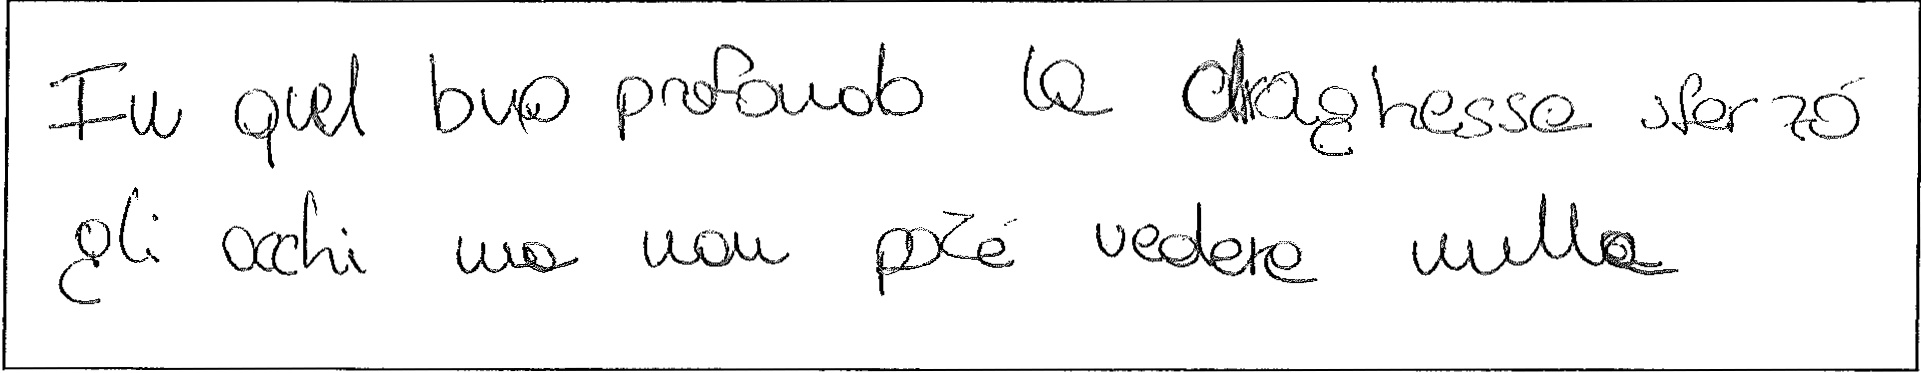 In quel buio profondo la draghessa sferzó
gli occhi ma non poté vedere nulla